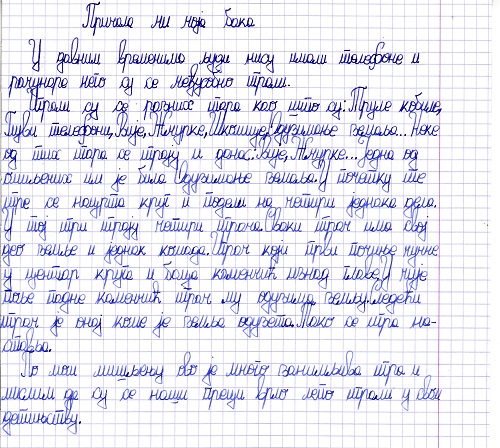 Причала ми моја бака
У давним временима људи нису имали телефоне и
рачунаре него су се међусобно играли.
Играли су се разних игара као што су: Труле кобиле,
Глуви телефони, Вије, Жмурке, Школице, Одузимање земље... Неке
од тих игара се играју и данас: Вије, Жмурке... Једна од
омиљених им је била Одузимање земље. У почетку те
игре се нацрта круг и подели на четири једнака дела.
У тој игри играју четири играча. Сваки играч има свој
део земље и један комад. Играч који први почиње чучне
у центар круга и баца каменчић изнад главе. У чије
поље падне каменчић играч му одузима земљу. Следећи
играч је онај коме је земља одузета. Тако се игра на-
ставља.
По мом мишљењу ово је много занимљива игра и
мислим да су се наши преци врло лепо играли у свом
детињству.